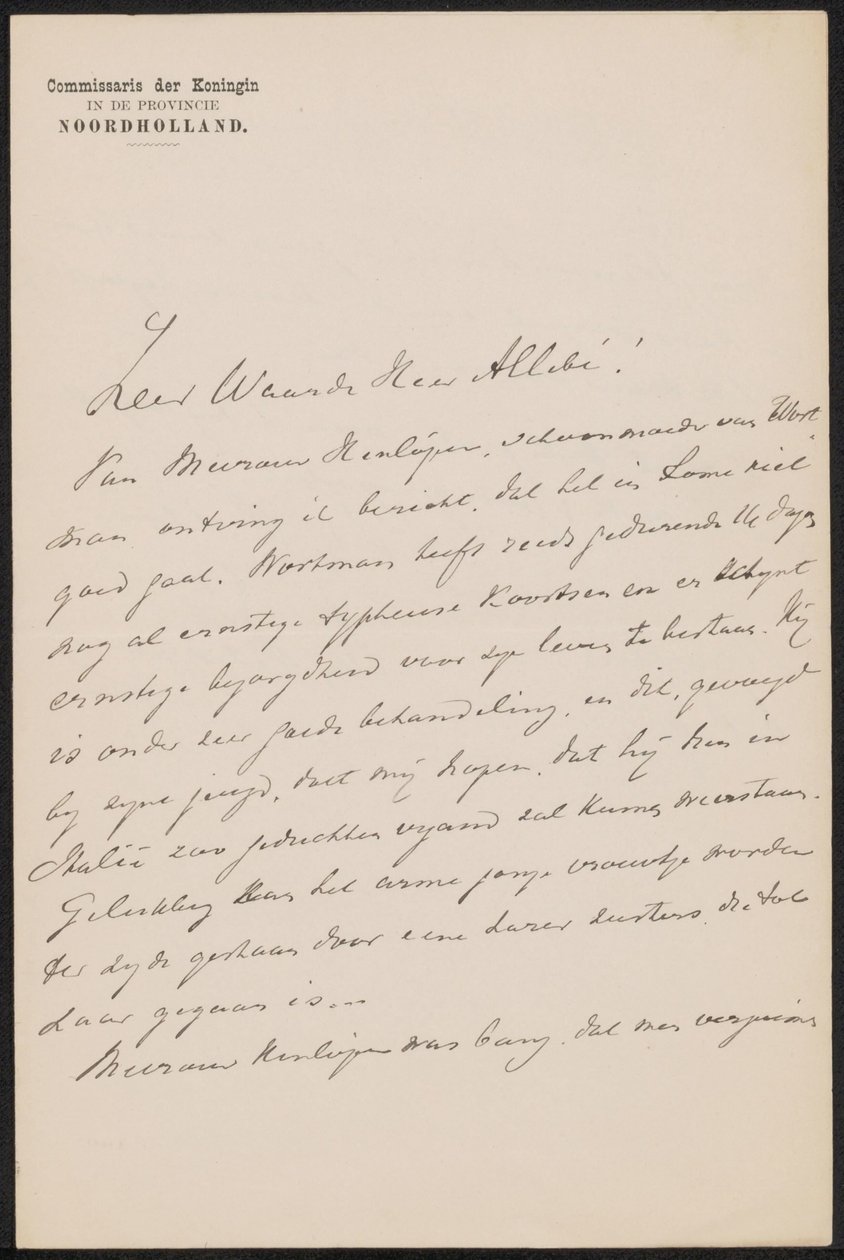 Commissaris der Koningin
IN DE PROVINCIE
NOORDHOLLAND.
Zeer Waarde Heer Allebé!
Van Mevrouw Henlópen, schoonmoeder van Wort
man ontving ik bericht, dat het in Rome niet
goed gaat. Wortman heeft reeds gedurende 14 dagen
nog al ernstige typheuse Koortsen en er schynt
ernstige bezorgdheid voor zyn leven te bestaan. Hij
is onder zeer goede behandeling, en dit, gevoegd
by zyne jeugd, doet mij hopen, dat hij den in
Italië zoo geduchten vyand zal kunnen weerstaan.
Gelukkig kan het arme jonge vrouwtje worden
ter zyde gestaan door eene harer zusters, die tot
haar gegaan is...
Mevrouw Henlópen was bang, dat men verzuimen